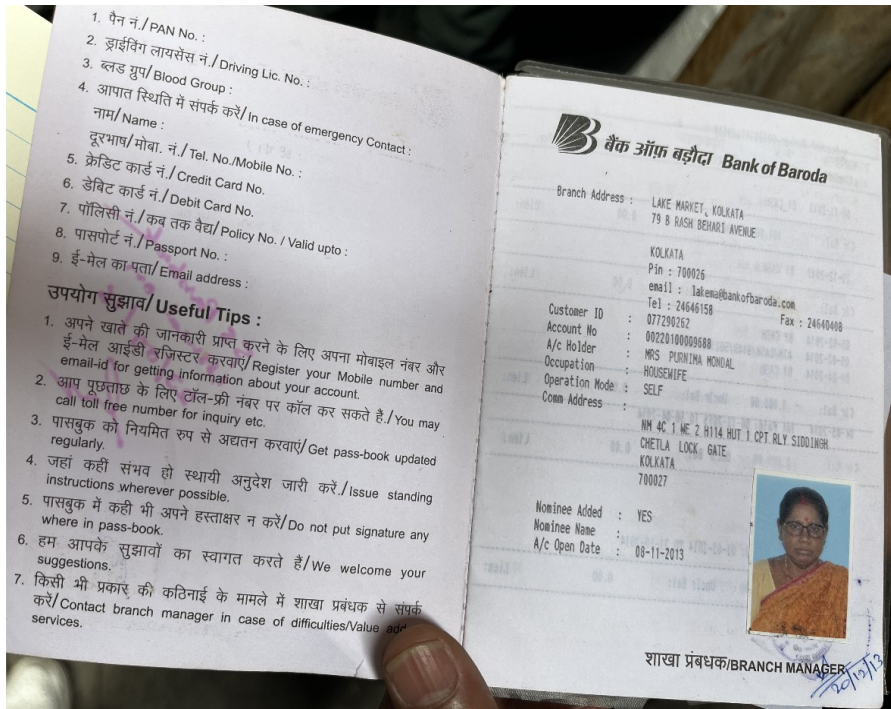 1. पैन नं./PAN No. :
2. ड्राईविंग लायसेंस नं./Driving Lic. No. :
3. ब्लड ग्रुप/Blood Group :
4. आपात स्थिति में संपर्क करें/In case of emergency Contact :
नाम/Name :
दूरभाष/मोबा. नं./Tel. No./Mobile No. :
5. क्रेडिट कार्ड नं./Credit Card No.
6. डेबिट कार्ड नं./Debit Card No.
7. पॉलिसी नं./कब तक वैद्य/Policy No. / Valid upto :
8. पासपोर्ट नं./Passport No. :
9. ई-मेल का पता/Email address :
उपयोग सुझाव/Useful Tips :
1. अपने खाते की जानकारी प्राप्त करने के लिए अपना मोबाइल नंबर और
ई-मेल आईडी रजिस्टर करवाएं/Register your Mobile number and
email-id for getting information about your account.
2. आप पूछताछ के लिए टॉल-फ्री नंबर पर कॉल कर सकते हैं./You may
call toll free number for inquiry etc.
3. पासबुक को नियमित रुप से अद्यतन करवाएं/Get pass-book updated
regularly.
4. जहां कहीं संभव हो स्थायी अनुदेश जारी करें./Issue standing
instructions wherever possible.
5. पासबुक में कही भी अपने हस्ताक्षर न करें/Do not put signature any
where in pass-book.
6. हम आपके सुझावों का स्वागत करते हैं/We welcome your
suggestions.
7. किसी भी प्रकार की कठिनाई के मामले में शाखा प्रबंधक से संपर्क
करें/Contact branch manager in case of difficulties/Value
services.
बैंक ऑफ़ बड़ौदा Bank of Baroda
Branch Address : LAKE MARKET, KOLKATA
79 B RASH BEHARI AVENUE
KOLKATA
Pin : 700026
email : lakema@bankofbaroda.com
Tel : 24646158 Fax : 24640408
Customer ID : 077290262
Account No : 00220100009688
A/c Holder : MRS PURNIMA MONDAL
Occupation : HOUSEWIFE
Operation Mode : SELF
Comm Address :
NM 4C 1 WE 2 H114 HUT 1 CPT RLY SIDDINGH
CHETLA LOCK GATE
KOLKATA
700027
Nominee Added : YES
Nominee Name :
A/c Open Date : 08-11-2013
शाखा प्रंबधक/BRANCH MANAGER
20/12/13